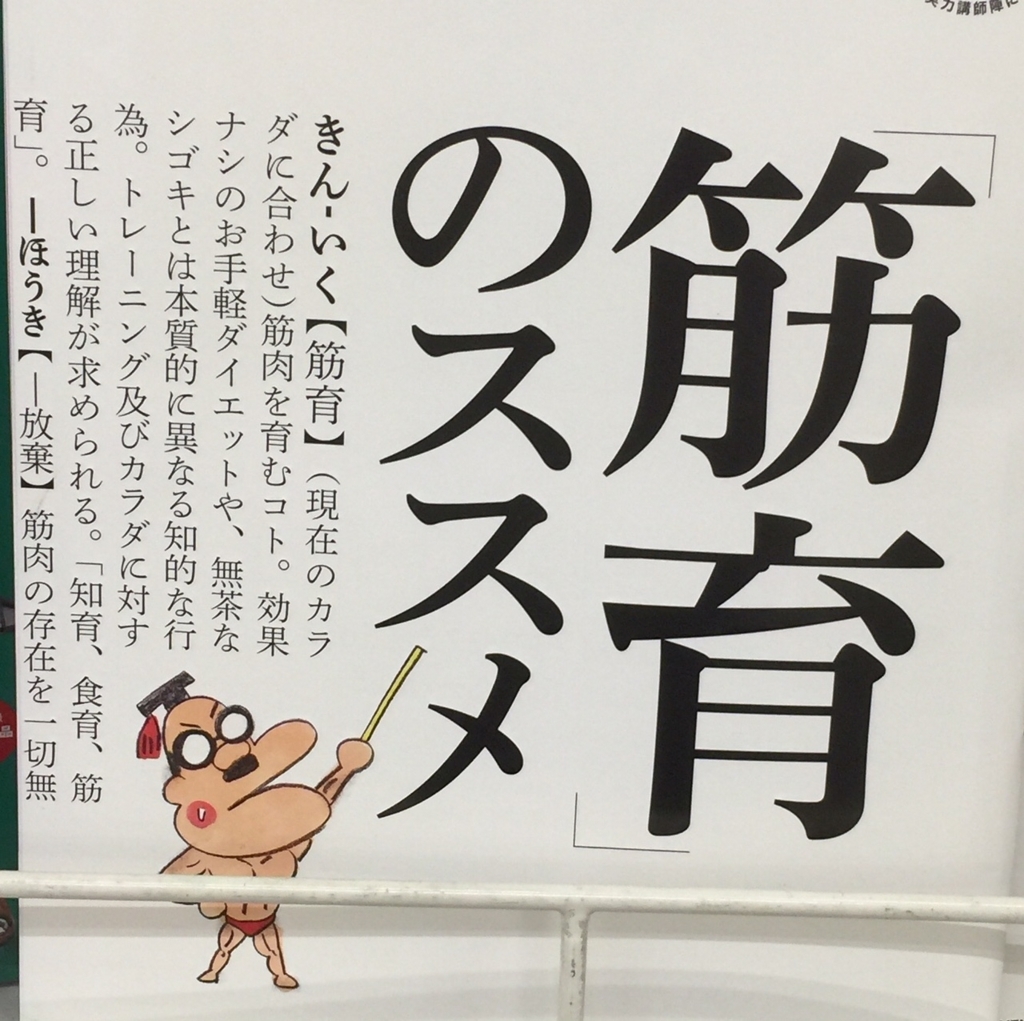 実力講師陣に
「筋育
のススメ」
きん-いく【筋育】(現在のカラ
ダに合わせ)筋肉を育むコト。効果
ナシのお手軽ダイエットや、無茶な
シゴキとは本質的に異なる知的な行
為。トレーニング及びカラダに対す
る正しい理解が求められる。「知育、食育、筋
育」。ーほうき【ー放棄】筋肉の存在を一切無